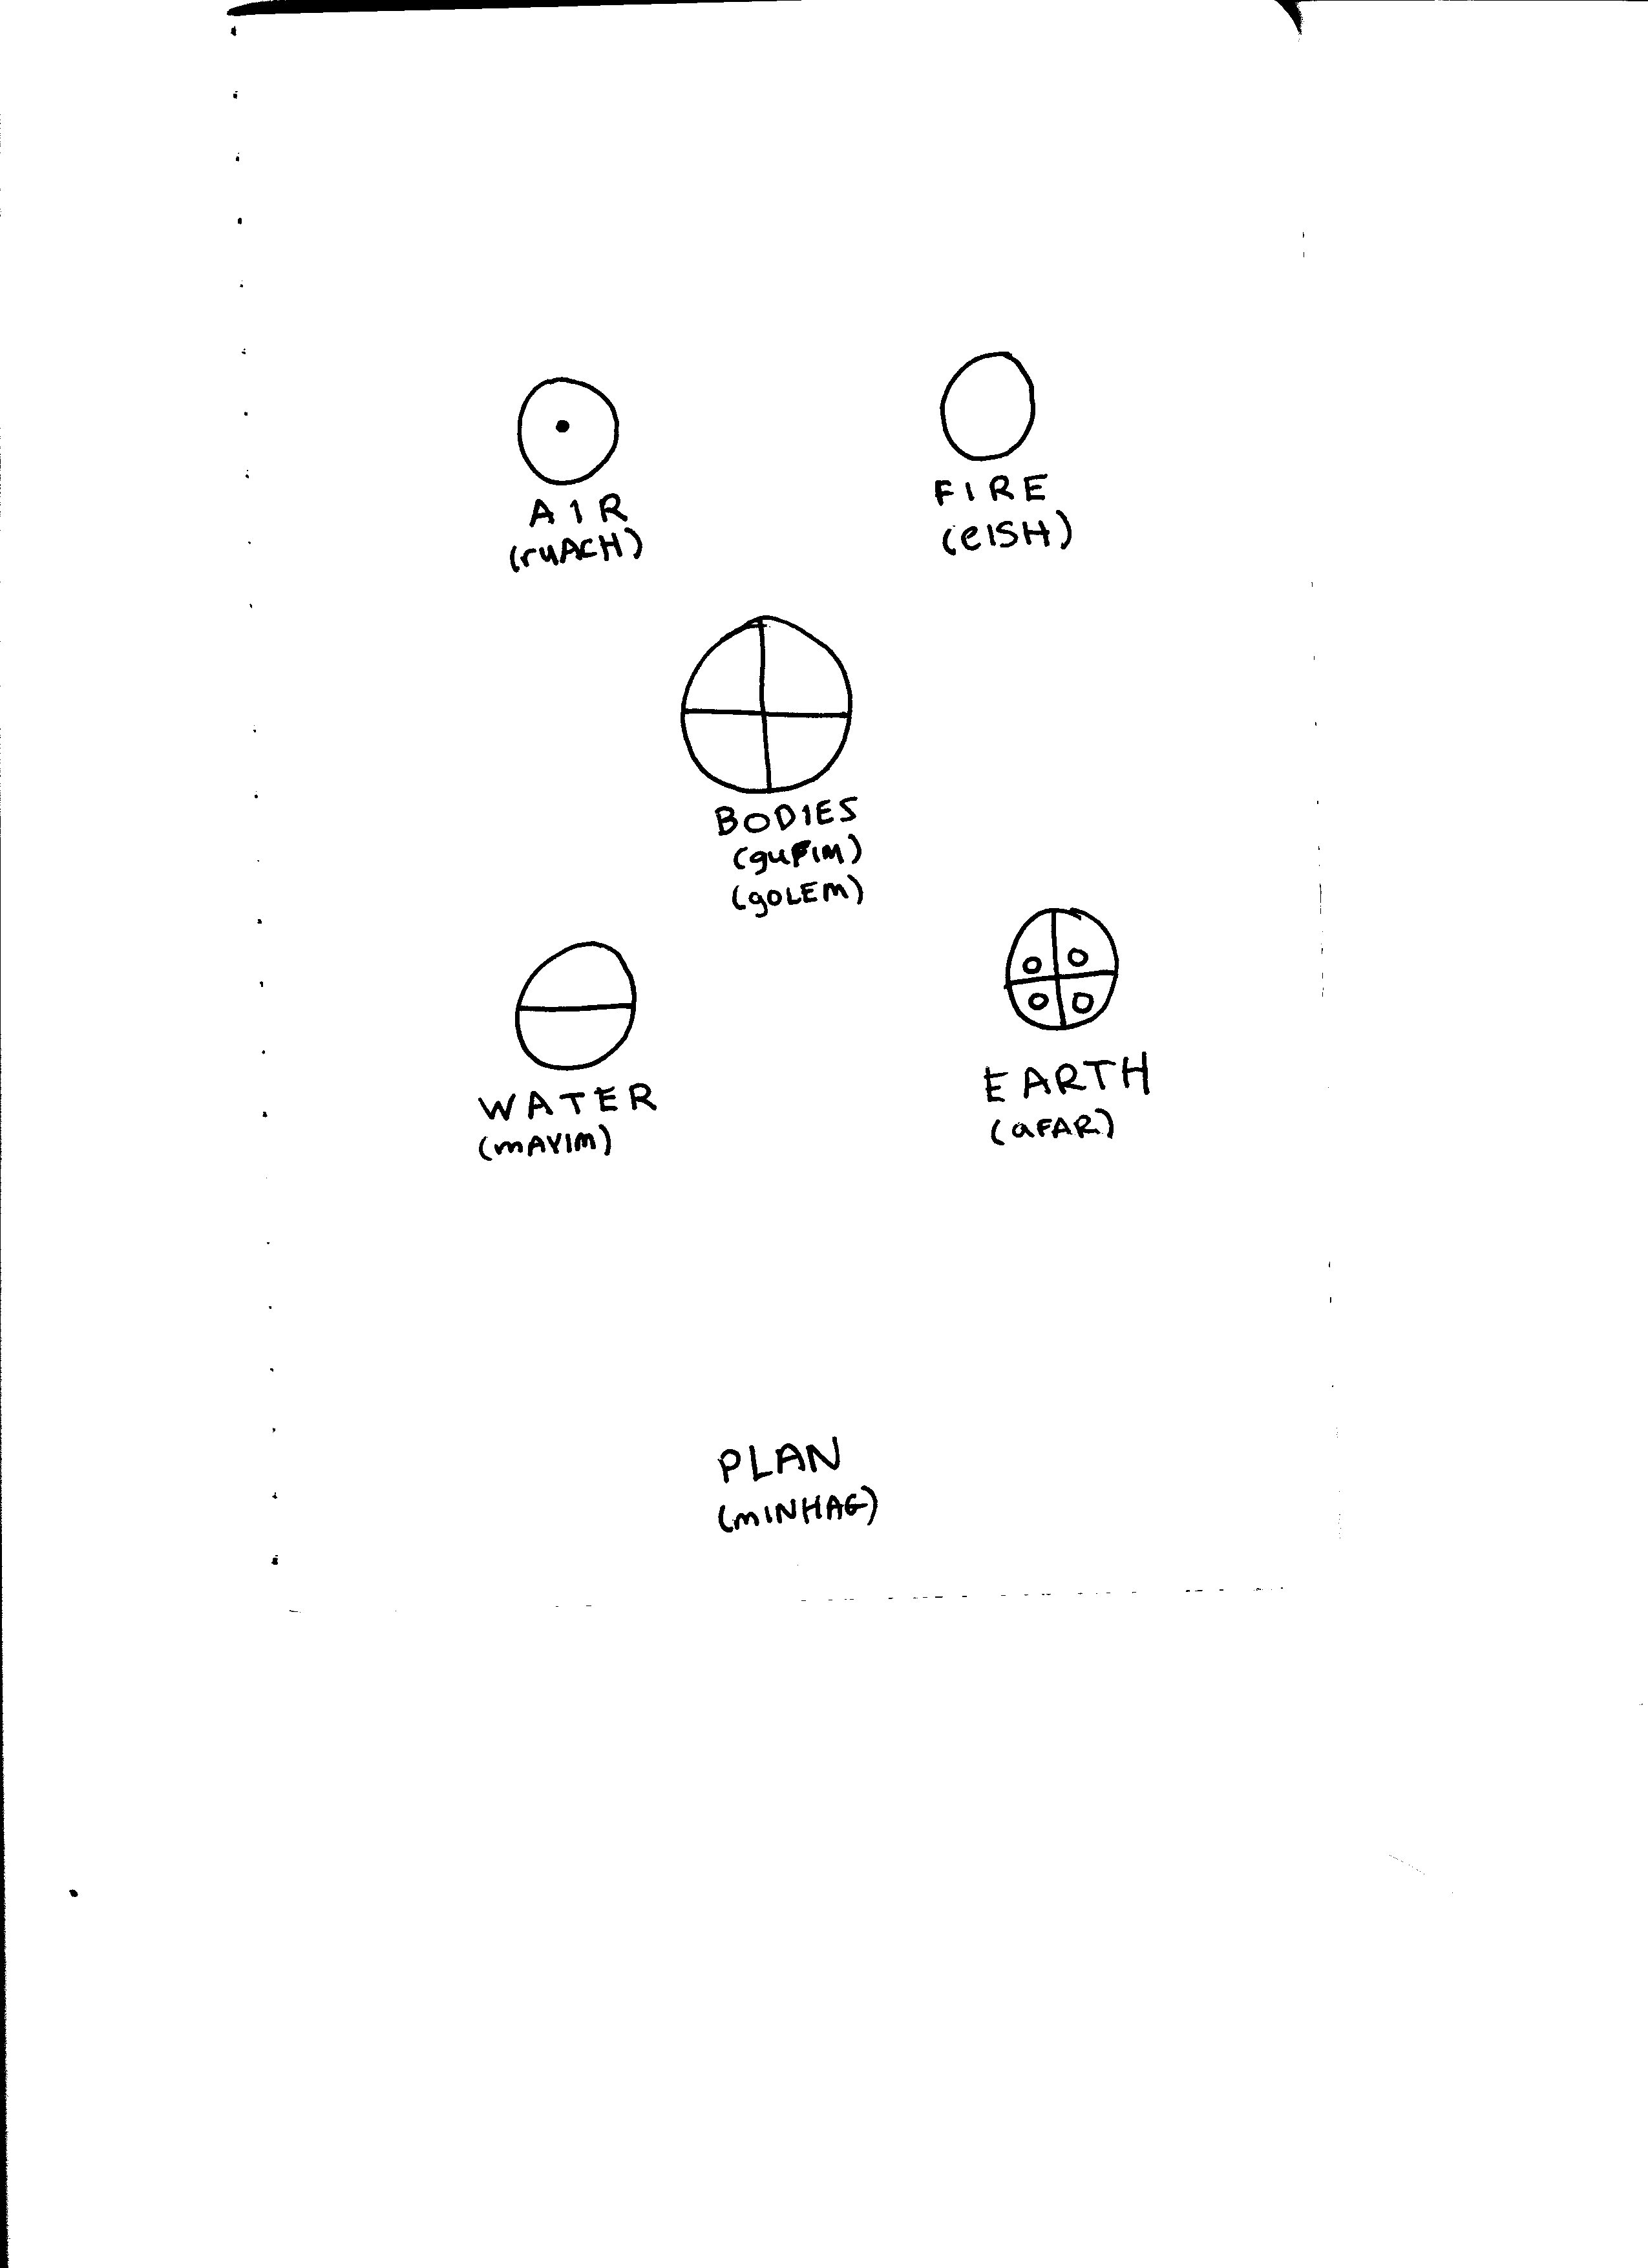 AIR
(ruACH)
FIRE
(eISH)
BODIES
(guFIM)
(gOLEM)
WATER
(mAYIM)
EARTH
(aFAR)
PLAN
(mINHAG)